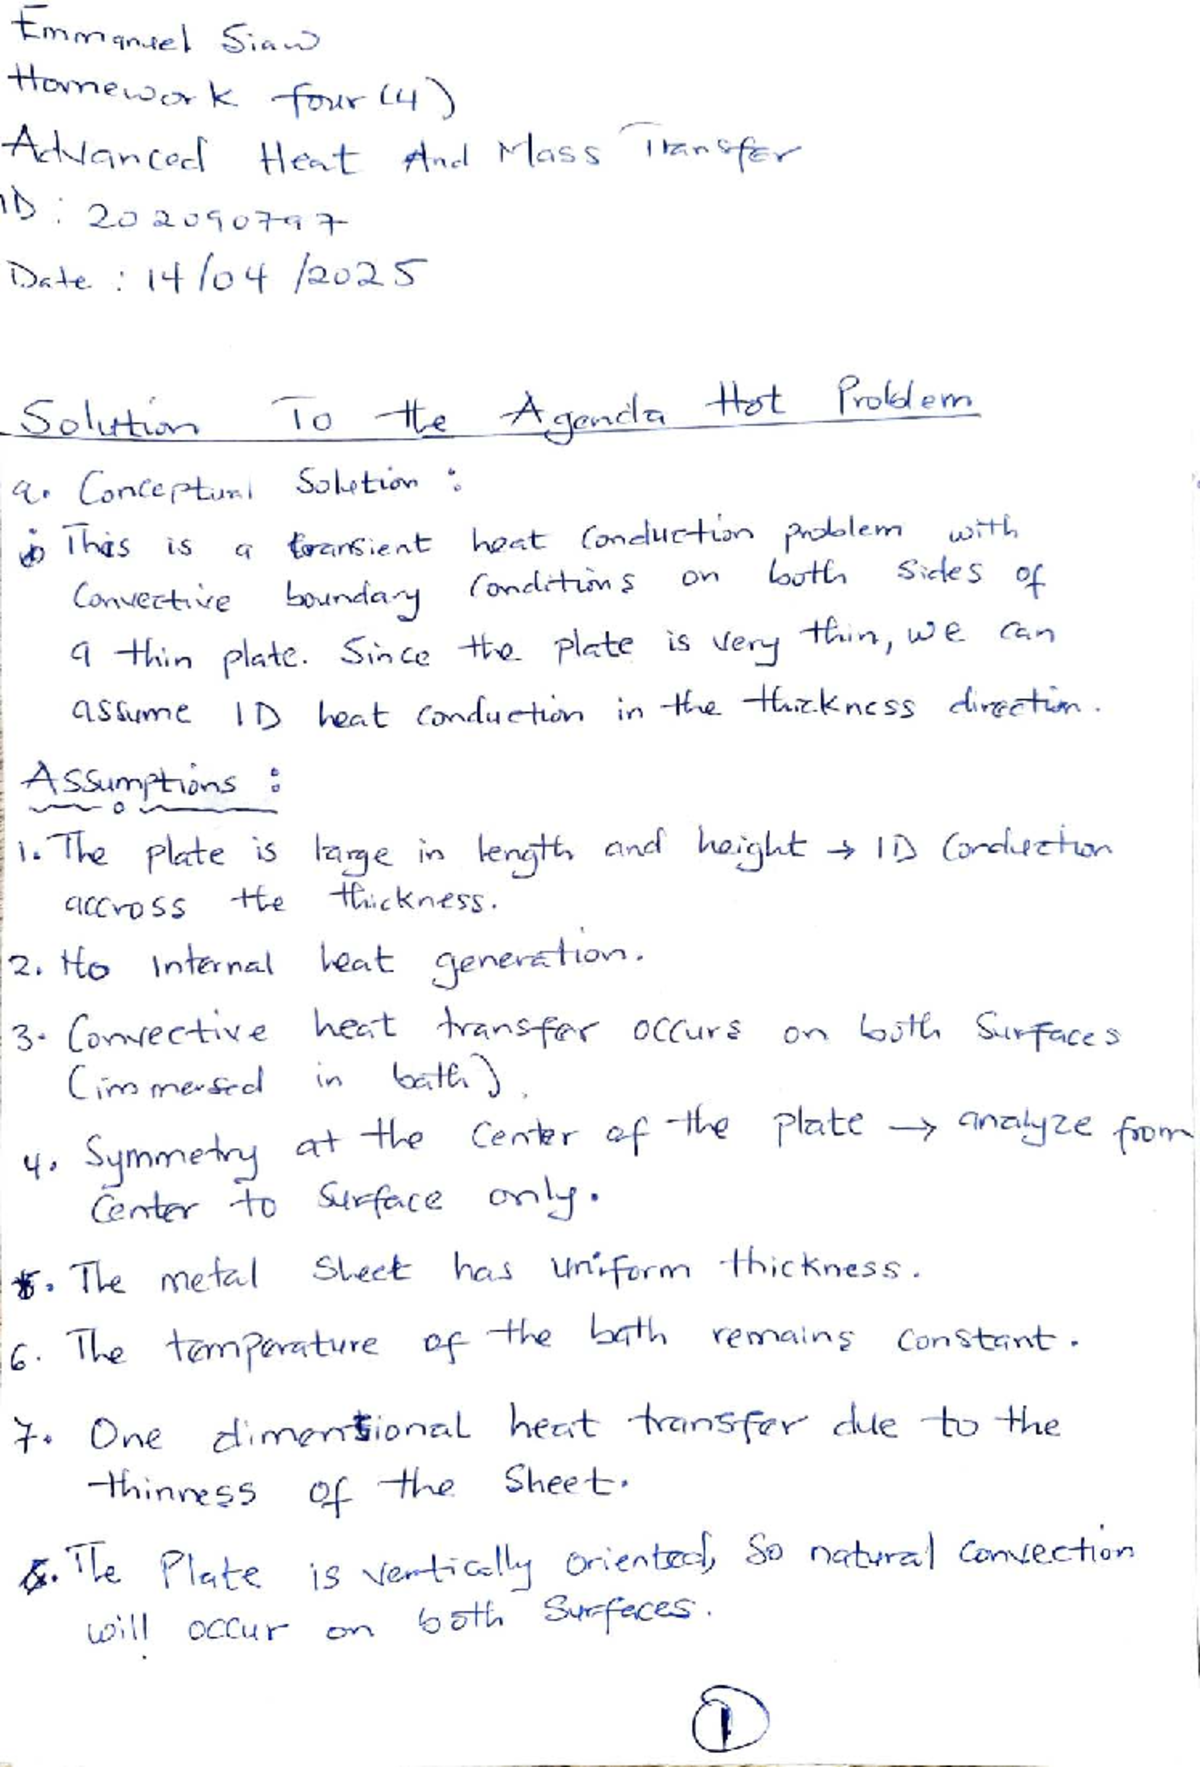 Emmanuel Siaw
Homework four (4)
Advanced Heat And Mass Transfer
ID : 202090797
Date : 14/04/2025
Solution To the Agenda Hot Problem
a. Conceptual Solution :
This is a transient heat conduction problem with
Convective boundary Conditions on both sides of
a thin plate. Since the plate is very thin, we can
assume 1D heat conduction in the thickness direction.
Assumptions :
1. The plate is large in length and height → 1D Conduction
accross the thickness.
2. No internal heat generation.
3. Convective heat transfer occurs on both Surfaces
(immersed in bath).
4. Symmetry at the Center of the plate → analyze from
Center to Surface only.
5. The metal Sheet has uniform thickness.
6. The temperature of the bath remains constant.
7. One dimensional heat transfer due to the
thinness of the Sheet.
8. The Plate is vertically oriented, So natural Convection
will occur on both Surfaces.
1